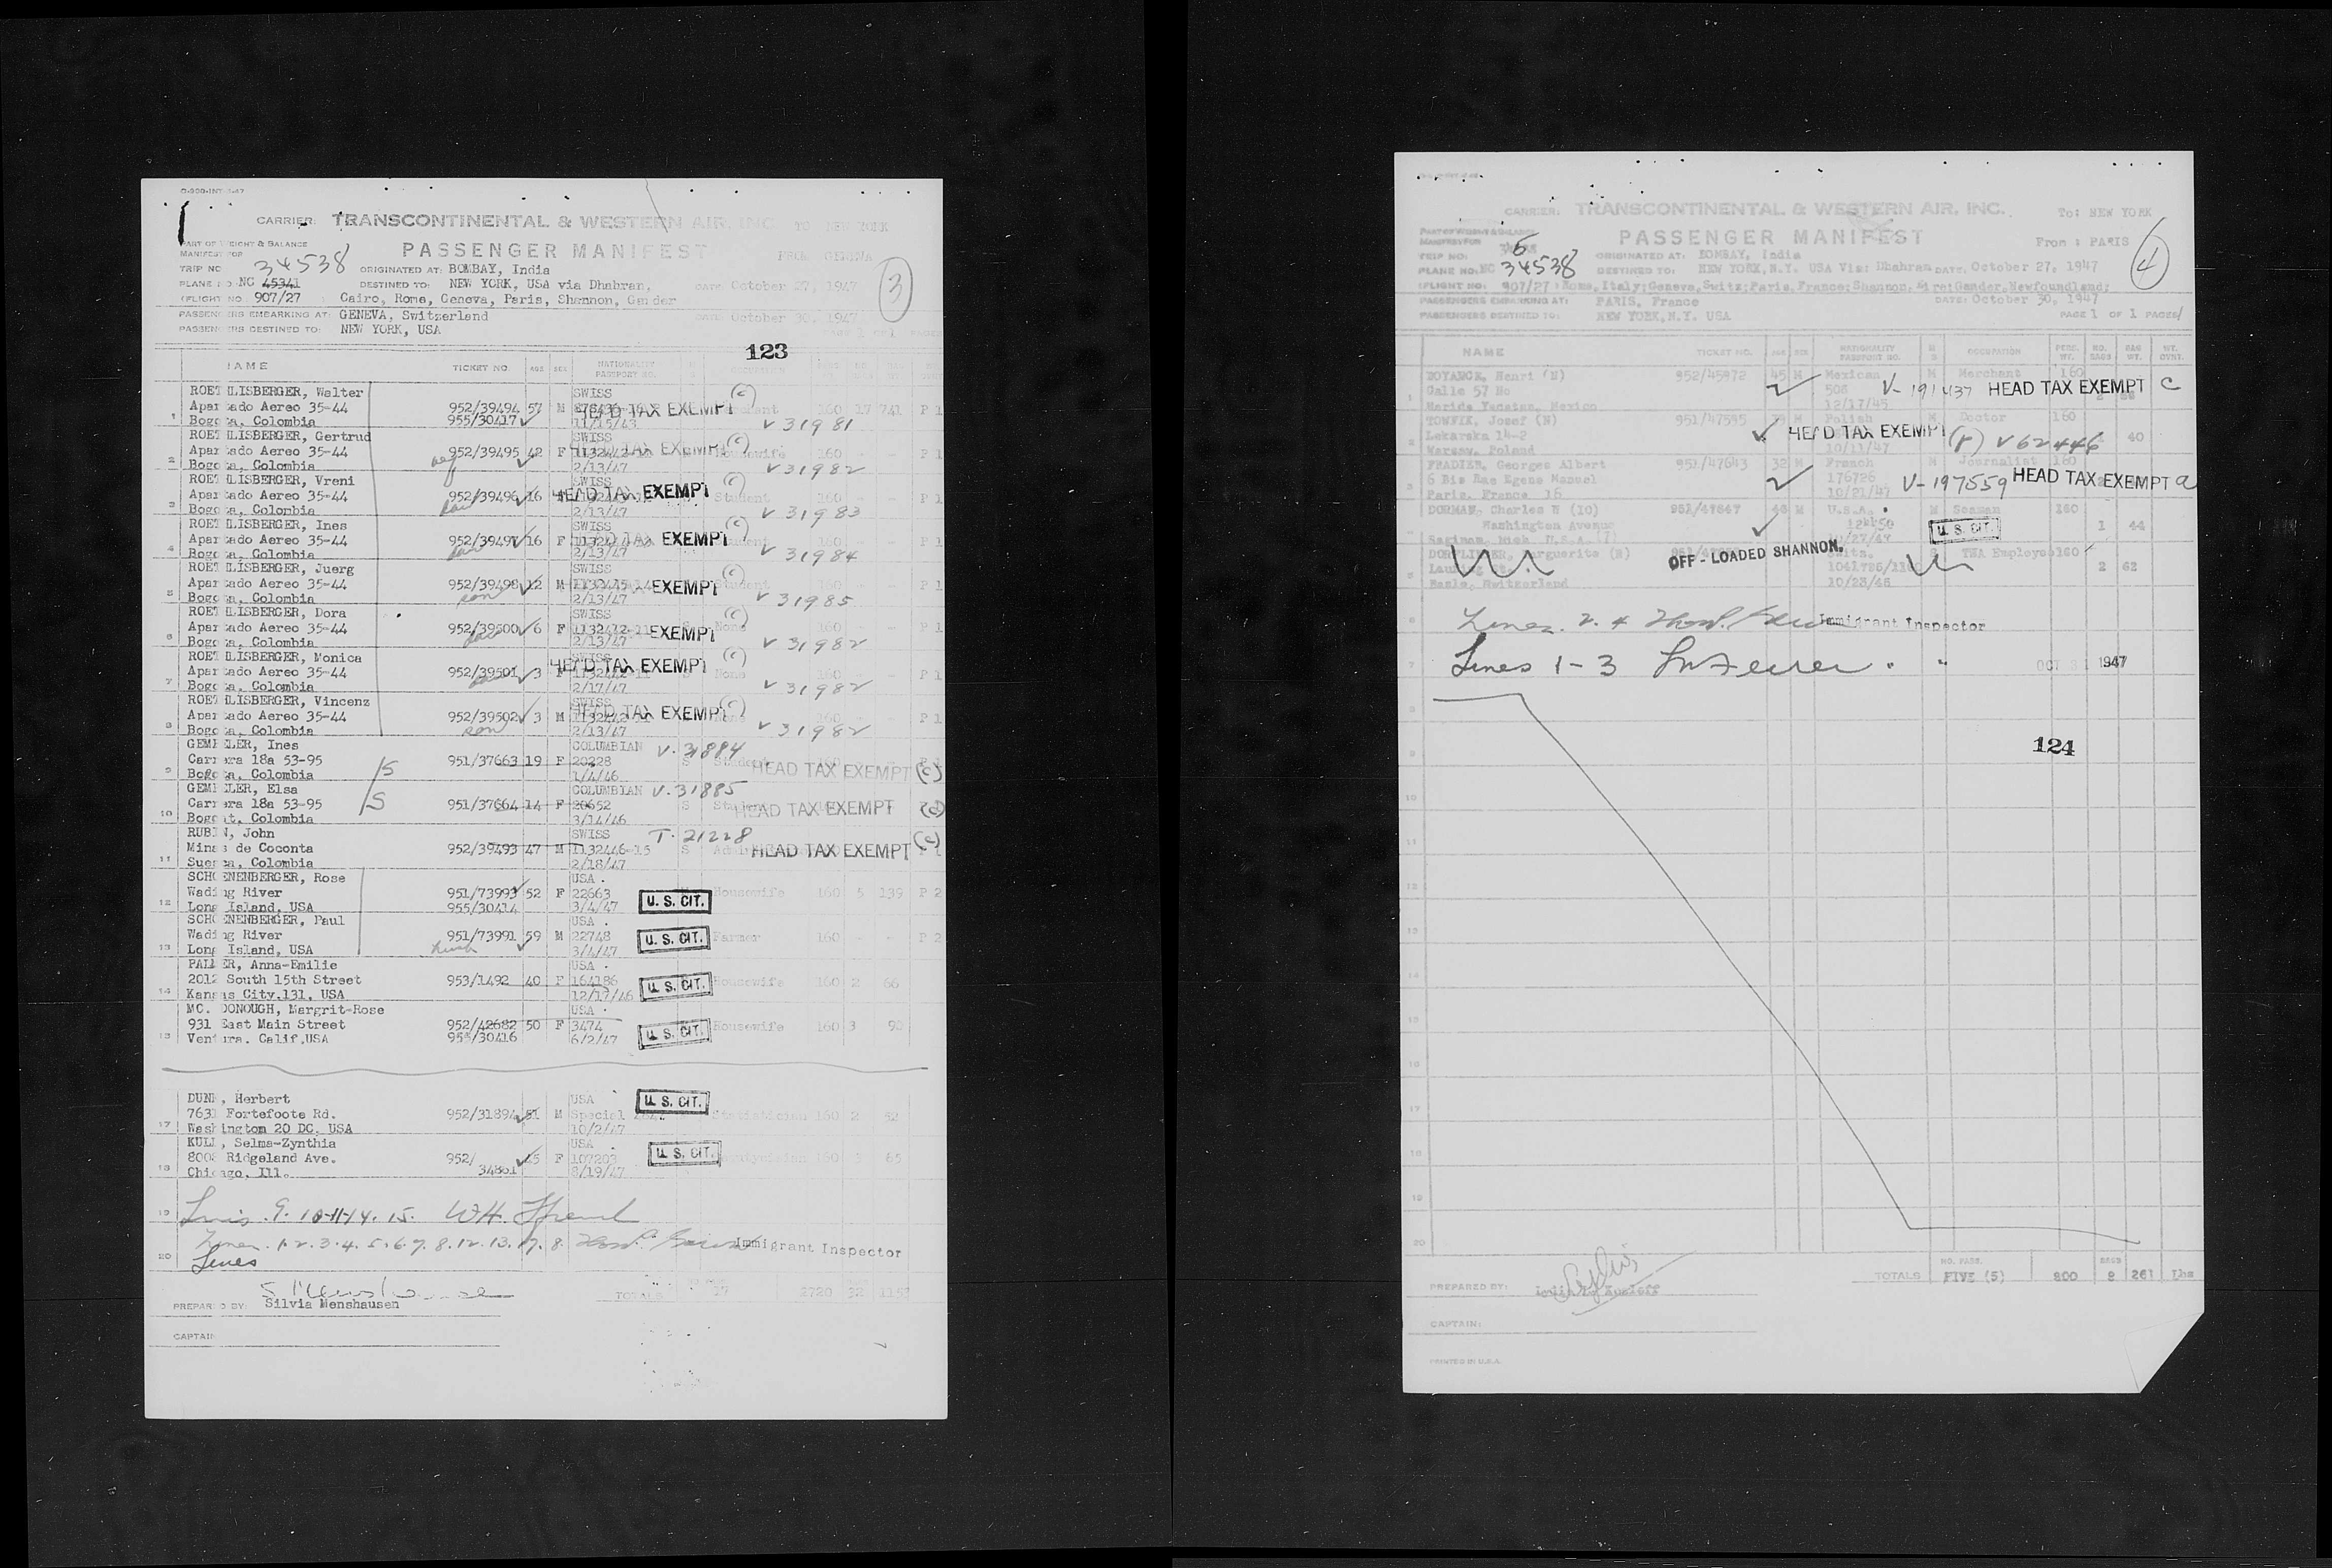 CARRIER: TRANSCONTINENTAL & WESTERN AIR, INC. TO NEW YORK
PART OF WEIGHT & BALANCE
MANIFEST FOR
PASSENGER MANIFEST FROM GENEVA
TRIP NO 34538 ORIGINATED AT: BOMBAY, India
PLANE NO: NC 45341 DESTINED TO: NEW YORK, USA via Dhahran, DATE October 27, 1947 3
(FLIGHT NO. 907/27 ) Cairo, Rome, Geneva, Paris, Shannon, Gander
PASSENGERS EMBARKING AT: GENEVA, Switzerland DATE October 30, 1947
PASSENGERS DESTINED TO: NEW YORK, USA PAGE 1 OF 1 PAGES
123
NAME TICKET NO. AGE SEX NATIONALITY PASSPORT NO. OCCUPATION
ROETHLISBERGER, Walter SWISS (c)
1 Apartado Aereo 35-44 952/39494 57 M HEAD TAX EXEMPT 160 17 741 P 1
Bogota, Colombia 955/30417 11/15/43 V 31981
ROETHLISBERGER, Gertrud SWISS (c)
2 Apartado Aereo 35-44 952/39495 42 F HEAD TAX EXEMPT Housewife 160 - - P 1
Bogota, Colombia 2/13/47 V 31982
ROETHLISBERGER, Vreni SWISS (c)
3 Apartado Aereo 35-44 952/39496 16 HEAD TAX EXEMPT Student 160 - - P 1
Bogota, Colombia 2/13/47 V 31983
ROETHLISBERGER, Ines SWISS (c)
4 Apartado Aereo 35-44 952/39497 16 F HEAD TAX EXEMPT Student 160 - - P 1
Bogota, Colombia 2/13/47 V 31984
ROETHLISBERGER, Juerg SWISS (c)
5 Apartado Aereo 35-44 952/39498 12 M HEAD TAX EXEMPT Student 160 - - P 1
Bogota, Colombia son 2/13/47 V 31985
ROETHLISBERGER, Dora SWISS (c)
6 Apartado Aereo 35-44 952/39500 6 F HEAD TAX EXEMPT None 160 - - P 1
Bogota, Colombia 2/13/47 V 31982
ROETHLISBERGER, Monica SWISS (c)
7 Apartado Aereo 35-44 952/39501 3 F HEAD TAX EXEMPT None 160 - - P 1
Bogota, Colombia 2/17/47 V 31982
ROETHLISBERGER, Vincenz SWISS (c)
8 Apartado Aereo 35-44 952/39502 3 M HEAD TAX EXEMPT 160 - - P 1
Bogota, Colombia son 2/13/47 V 31982
Ines COLUMBIAN V. 31884
9 Carrera 18a 53-95 951/37663 19 F 20228 S Student HEAD TAX EXEMPT (c)
Bogota, Colombia 1/4/46
Elsa COLUMBIAN V. 31885
10 Carrera 18a 53-95 951/37664 14 F 20652 S HEAD TAX EXEMPT (c)
Bogot, Colombia 3/14/46
RUBIN, John SWISS T. 21228
11 Minas de Coconta 952/39493 47 M 1132446-15 S HEAD TAX EXEMPT (c)
Suesca, Colombia 2/18/47
SCHOENENBERGER, Rose USA .
12 Wading River 951/73993 52 F 22663 U. S. CIT. Housewife 160 5 139 P 2
Long Island, USA 955/30414 3/4/47
SCHOENENBERGER, Paul USA .
13 Wading River 951/73991 59 M 22748 U. S. CIT. Farmer 160 - - P 2
Long Island, USA 3/4/47
PALMER, Anna-Emilie USA .
14 2012 South 15th Street 953/1492 40 F 164186 U. S. CIT. Housewife 160 2 66
Kansas City.131, USA 12/17/46
MC. DONOUGH, Margrit-Rose USA .
15 931 East Main Street 952/42682 50 F 3474 U. S. CIT. Housewife 160 3 90
Ventura. Calif.USA 955/30416 6/2/47
DUNN, Herbert USA U. S. CIT.
17 7631 Fortefoote Rd. 952/31894 51 M Special Statistician 160 2 52
Washington 20 DC, USA 10/2/47
KULL, Selma-Zynthia USA .
18 8008 Ridgeland Ave. 952/34861 45 F 107203 U. S. CIT. 160 3 65
Chicago, Ill. 8/19/47
19 Lines 9. 10-11-14. 15. W.H.
20 Lines 1. 2. 3. 4. 5. 6. 7. 8. 12. 13. 17. 8. Immigrant Inspector
Lines
PREPARED BY: Silvia Menshausen
TOTALS 17 2720 32 1153
CAPTAIN
CARRIER: TRANSCONTINENTAL & WESTERN AIR, INC. To: NEW YORK
PART OF WEIGHT & BALANCE
MANIFEST FOR
PASSENGER MANIFEST From : PARIS
TRIP NO: 6 ORIGINATED AT: BOMBAY, India 4
PLANE NO: NC 34538 DESTINED TO: NEW YORK, N.Y. USA Via: Dhahran DATE: October 27, 1947
(FLIGHT NO. 907/27 Rome, Italy;Geneva, Switz;Paris, France;Shannon, Eire;Gander, Newfoundland;
PASSENGERS EMBARKING AT: PARIS, France DATE: October 30, 1947
PASSENGERS DESTINED TO: NEW YORK, N.Y. USA PAGE 1 OF 1 PAGES
NAME TICKET NO. AGE SEX NATIONALITY PASSPORT NO. M S OCCUPATION PERS. WT. NO. BAGS BAG WT. WT. OVNT.
Henri (N) 952/45972 45 M Mexican M Merchant 160
1 Calle 57 No 508 V-191437 HEAD TAX EXEMPT C
Merida Yucatan, Mexico 12/17/45
Josef (N) 951/47595 M Polish M Doctor 160
2 Lekarska 14-2 HEAD TAX EXEMPT (P) V 62446 40
Warsaw, Poland 10/11/47
FRADIER, Georges Albert 951/47643 32 M French M Journalist 160
3 6 Bis Rue Egene Manuel 176726 V-197559 HEAD TAX EXEMPT a
Paris, France 16 10/21/47
DORMAN, Charles W (10) 951/47647 M U.S.A. M Seaman 160
Washington Avenue U. S. CIT. 1 44
Saginaw, Mich. U.S.A. (7)
Marguerite (N) OFF-LOADED SHANNON. Switz. S TWA Employe 160
5 2 62
Basle, Switzerland 10/23/46
6 Lines 2. 4 Immigrant Inspector
7 Lines 1-3 " " OCT 31 1947
8
9
124
10
11
12
13
14
15
16
17
18
19
20
TOTALS NO. PASS. FIVE (5) 800 BAGS 8 261 Lbs
PREPARED BY:
CAPTAIN:
PRINTED IN U.S.A.